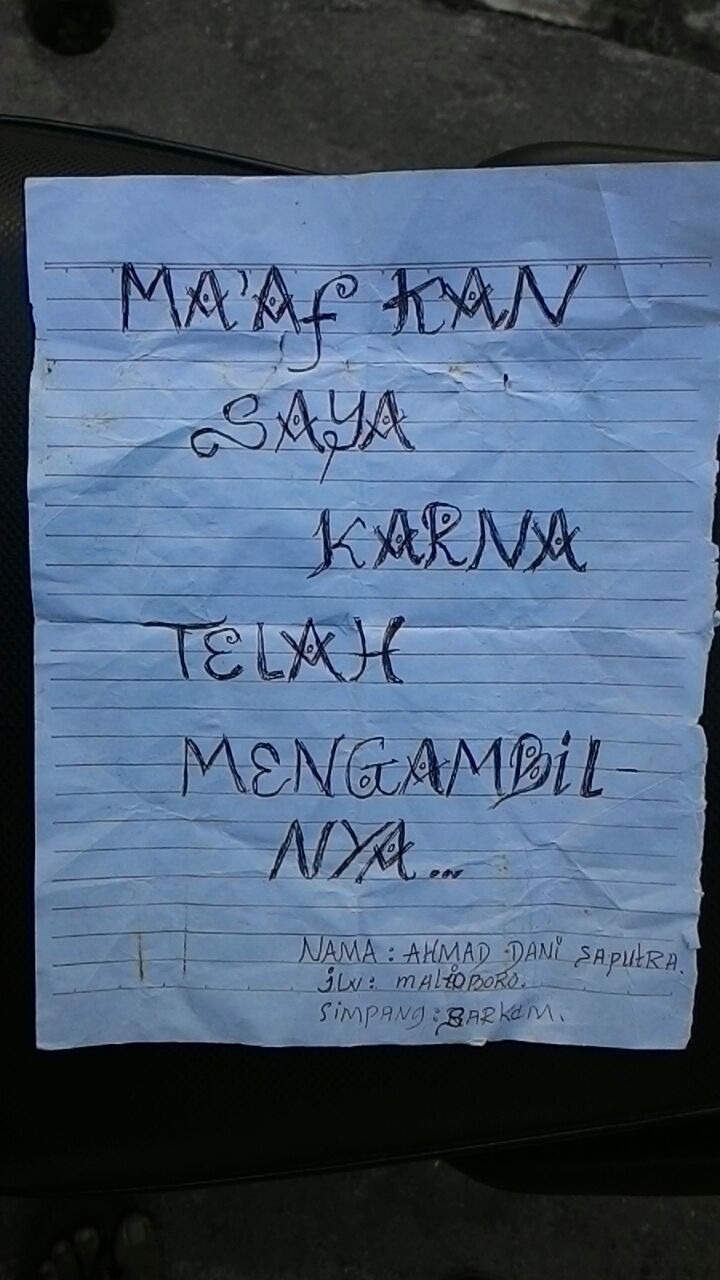 MA'Af KAN
SAYA
KARNA
TELAH
MENGAMBiL-
NYA...
NAMA : AHMAD DANi SAPUtRA.
JLN : MALiOBORO.
SiMPANG : BARKAM.